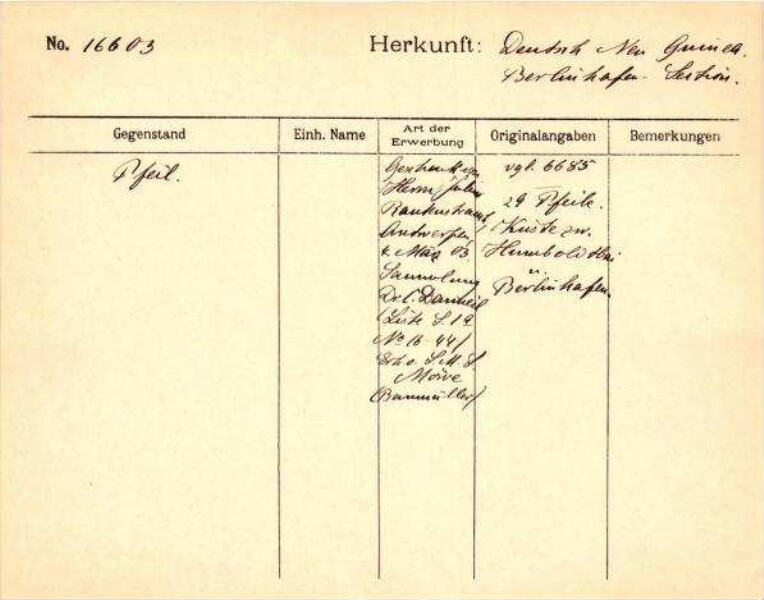 No. 16603
Herkunft: Deutsch Neu Guinea.
Berlinhafen-Section.
Gegenstand
Einh. Name
Art der Erwerbung
Originalangaben
Bemerkungen
Pfeil.
Geschenk von
Herrn Julius
Rautenstrauch,
Antwerpen,
März 03.
Sammlung
Dr. C. Danneil
(Liste S. 19
No 16-44)
S.M.S.
Möwe
(Baumüller)
vgl. 6685
29 Pfeile.
Küste zw.
Humboldtbai
u.
Berlinhafen.